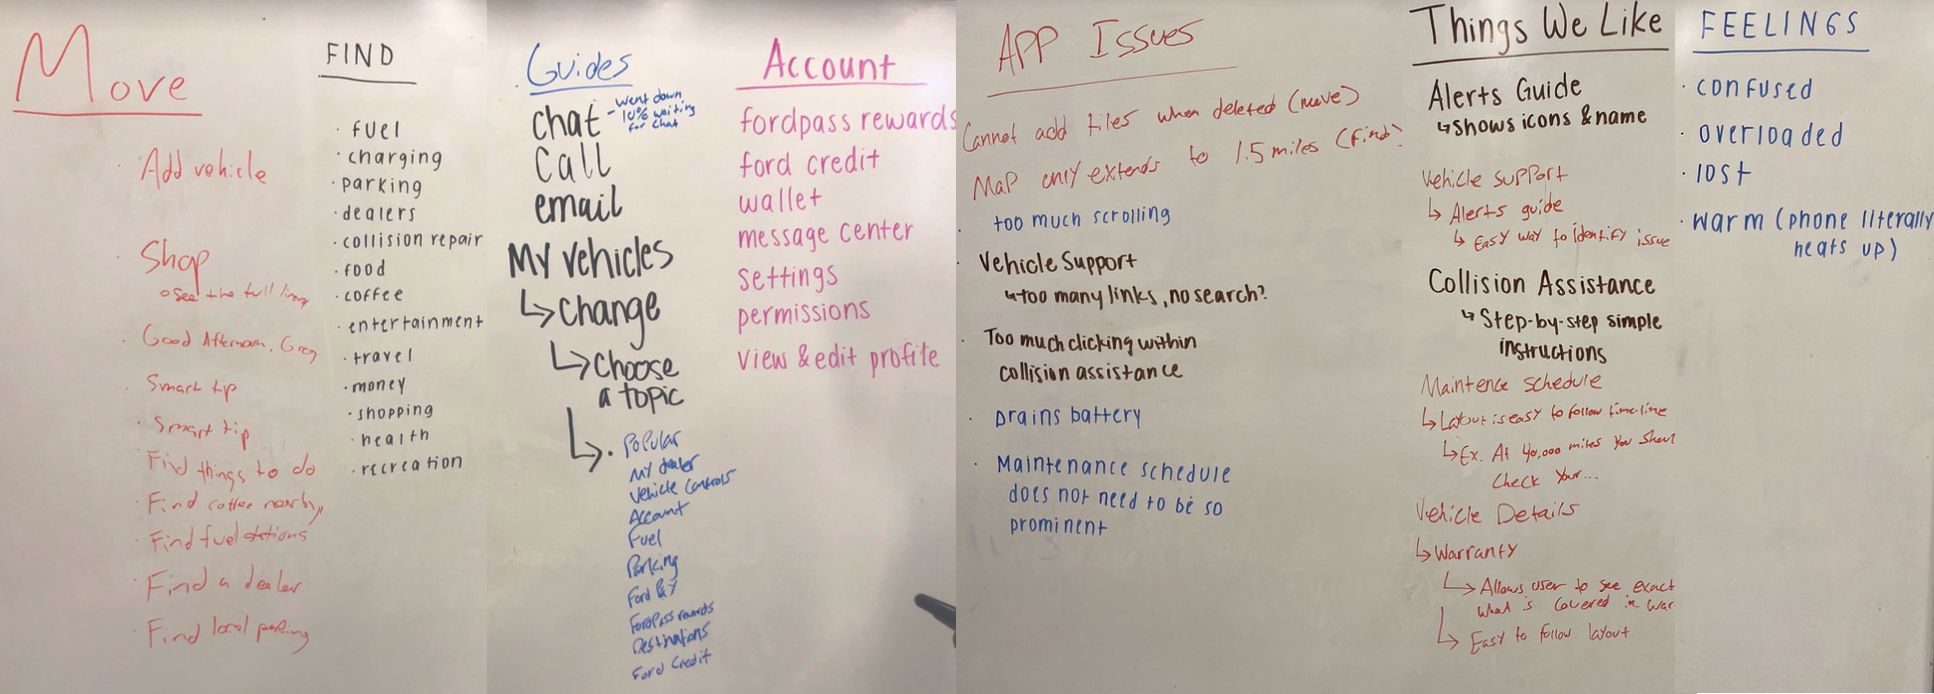 Move
Add vehicle
Shop
See the full lineup
Good Afternoon, Greg
Smart tip
Smart tip
Find things to do
Find coffee nearby
Find fuel stations
Find a dealer
Find local parking
FIND
· fuel
· charging
· parking
· dealers
· collision repair
· food
· coffee
· entertainment
· travel
· money
· shopping
· health
· recreation
Guides
chat - went down
10% waiting
for chat
Call
email
My vehicles
↳ Change
↳ Choose
a topic
↳ · Popular
My dealer
Vehicle Controls
Account
Fuel
Parking
Ford Pay
FordPass rewards
Destinations
Ford Credit
Account
fordpass rewards
ford credit
wallet
message center
settings
permissions
view & edit profile
APP Issues
Cannot add tiles when deleted (move)
Map only extends to 1.5 miles (find)
· too much scrolling
· Vehicle Support
↳ too many links, no search?
· Too much clicking within
collision assistance
· Drains battery
· Maintenance schedule
does not need to be so
prominent
Things We Like
Alerts Guide
↳ shows icons & name
Vehicle support
↳ Alerts guide
↳ Easy way to identify issue
Collision Assistance
↳ Step-by-step simple
instructions
Maintence schedule
↳ Layout is easy to follow time-line
↳ Ex. At 40,000 miles you shoul
check your...
Vehicle Details
↳ Warranty
↳ Allows user to see exact
what is covered in war
↳ Easy to follow layout
FEELINGS
· confused
· overloaded
· lost
· warm (phone literally
heats up)